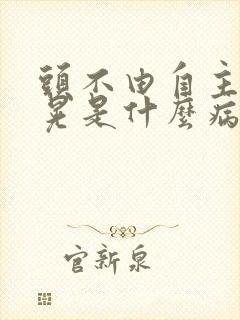 頭不由自主
晃是什麼病
官新泉